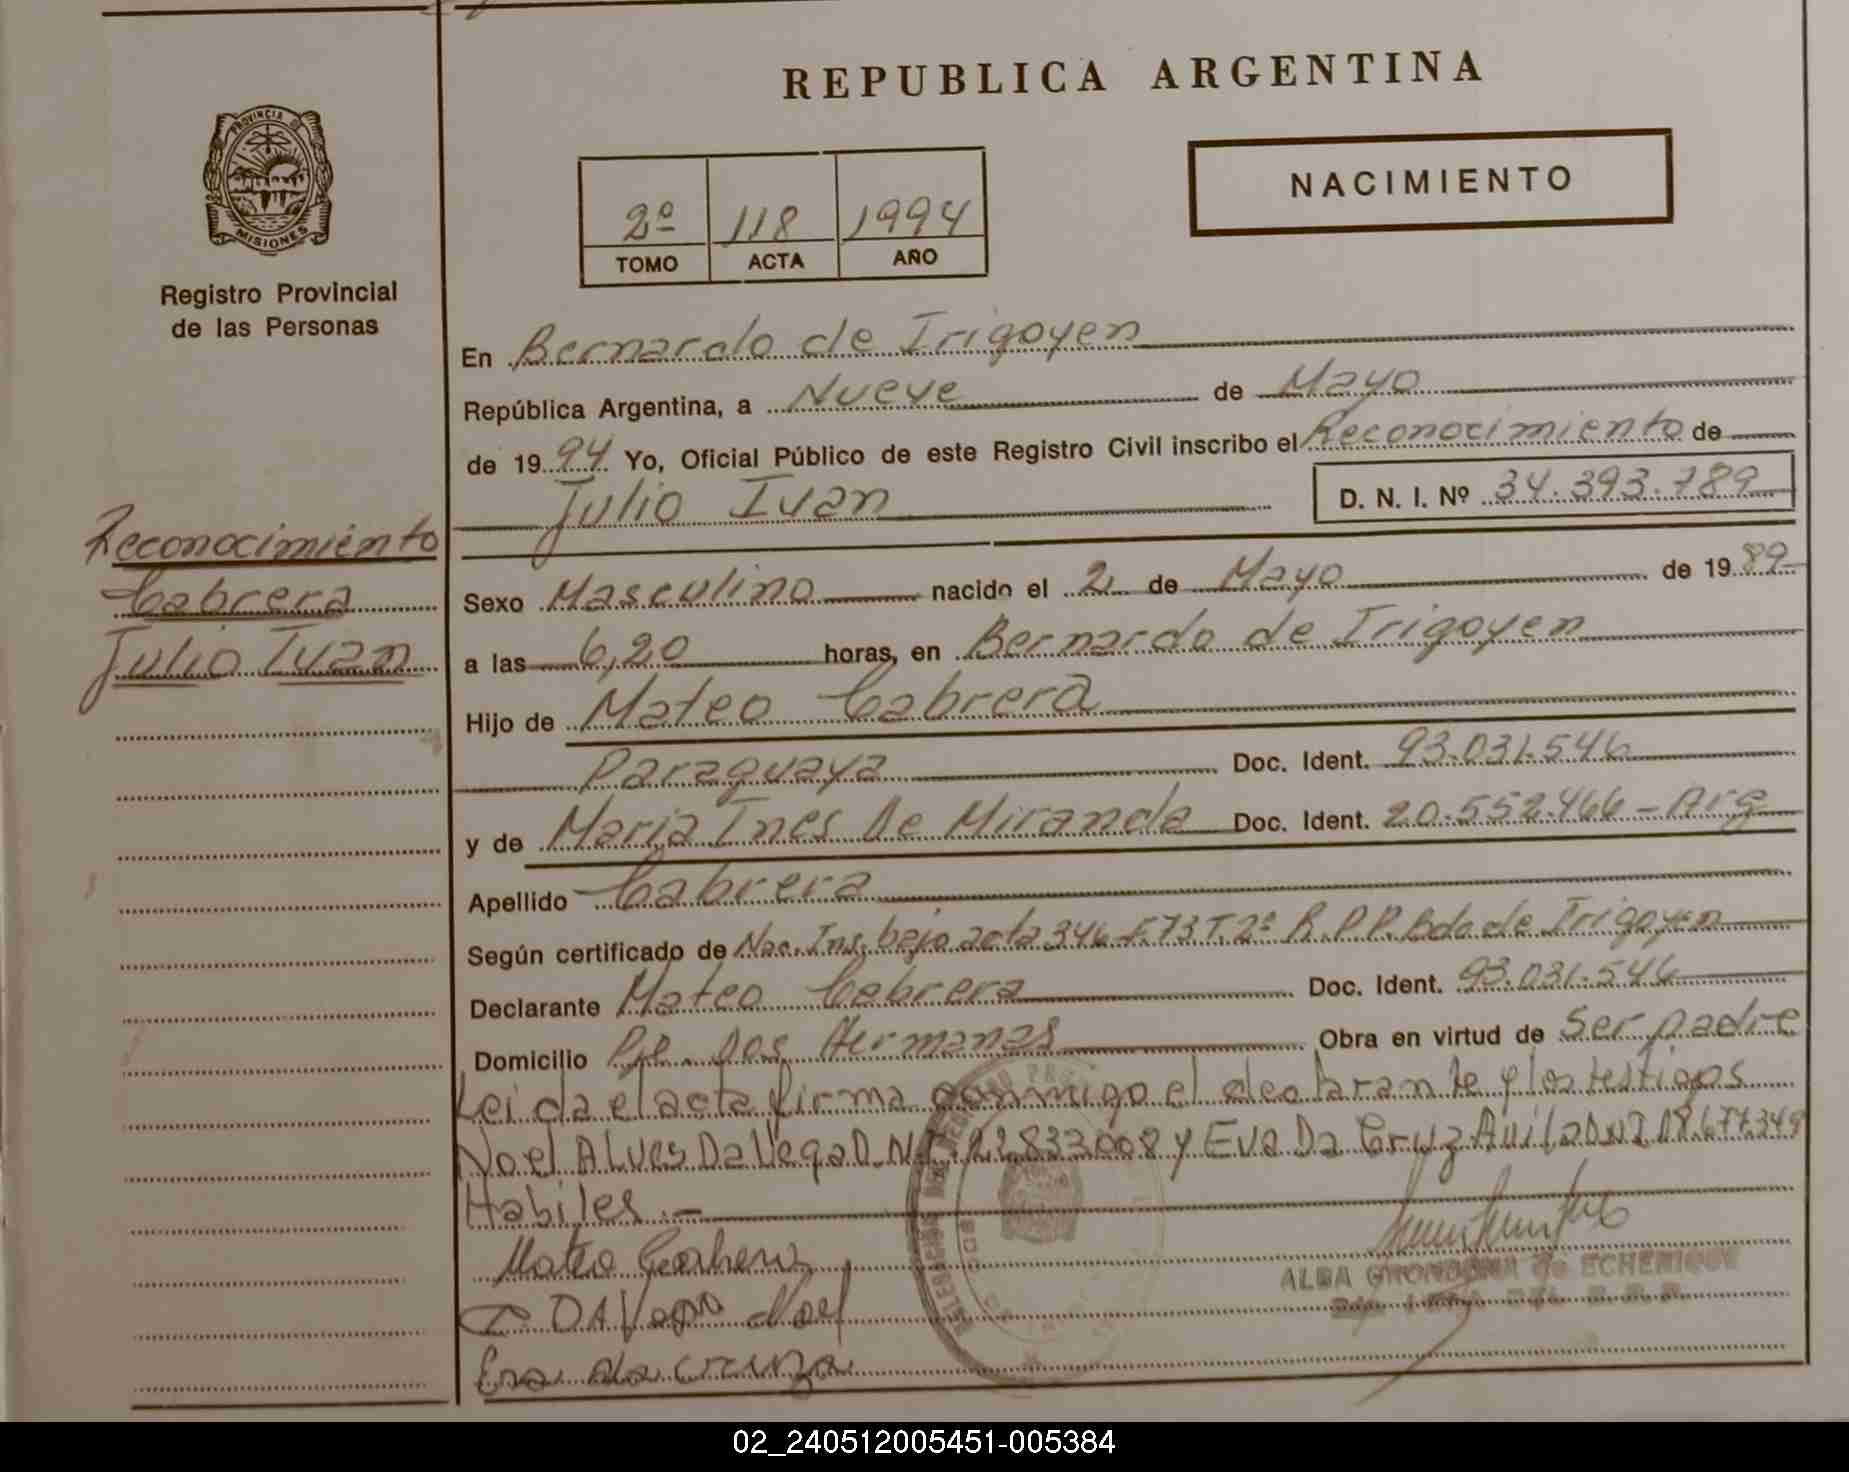 REPUBLICA ARGENTINA
PROVINCIA DE
MISIONES
Registro Provincial
de las Personas
NACIMIENTO
2º 118 1994
TOMO ACTA AÑO
En Bernardo de Irigoyen
República Argentina, a Nueve de Mayo
de 1994 Yo, Oficial Público de este Registro Civil inscribo el Reconocimiento de
Julio Ivan D. N. I. Nº 34.393.789
Reconocimiento
Cabrera
Julio Ivan
Sexo Masculino nacido el 2 de Mayo de 1989
a las 6,20 horas, en Bernardo de Irigoyen
Hijo de Mateo Cabrera
Paraguaya Doc. Ident. 93.031.546
y de Maria Ines De Miranda Doc. Ident. 20.552.466 - Arg
Apellido Cabrera
Según certificado de Nac. Ins. bajo acta 346 F 73 T. 2º R.P.P. Bdo de Irigoyen
Declarante Mateo Cabrera Doc. Ident. 93.031.546
Domicilio Pje. Dos Hermanas Obra en virtud de Ser padre
Leida el acta firma conmigo el declarante y los testigos
Noel ALVES Da Vega D.N.I. 22.833.008 y Eva Da Cruz Avila DNI 18.677.349
Habiles.-
Mateo Cabrera
DA Vega Noel
Eva da cruz
ALBA GRONDONA de ECHENIQUE